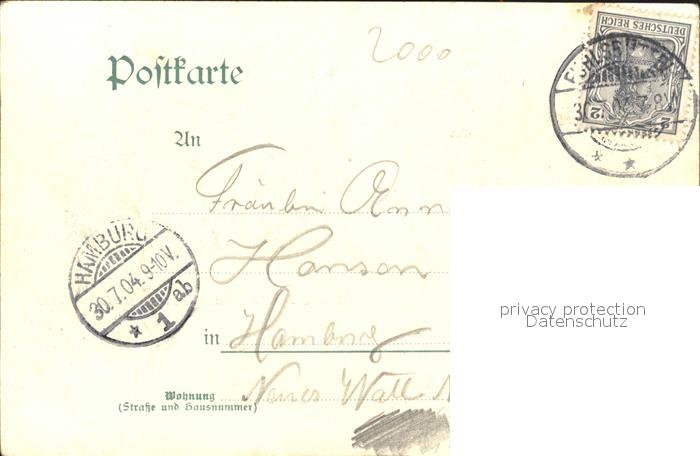 2000
DEUTSCHES REICH
2 2
Postkarte
An
Fräulein Ann
Hanson
HAMBURG
30.7.04. 9-10 V.
* 1 ab
in Hamburg
Wohnung
(Straße und Hausnummer)
Neuer Wall N
privacy protection
Datenschutz